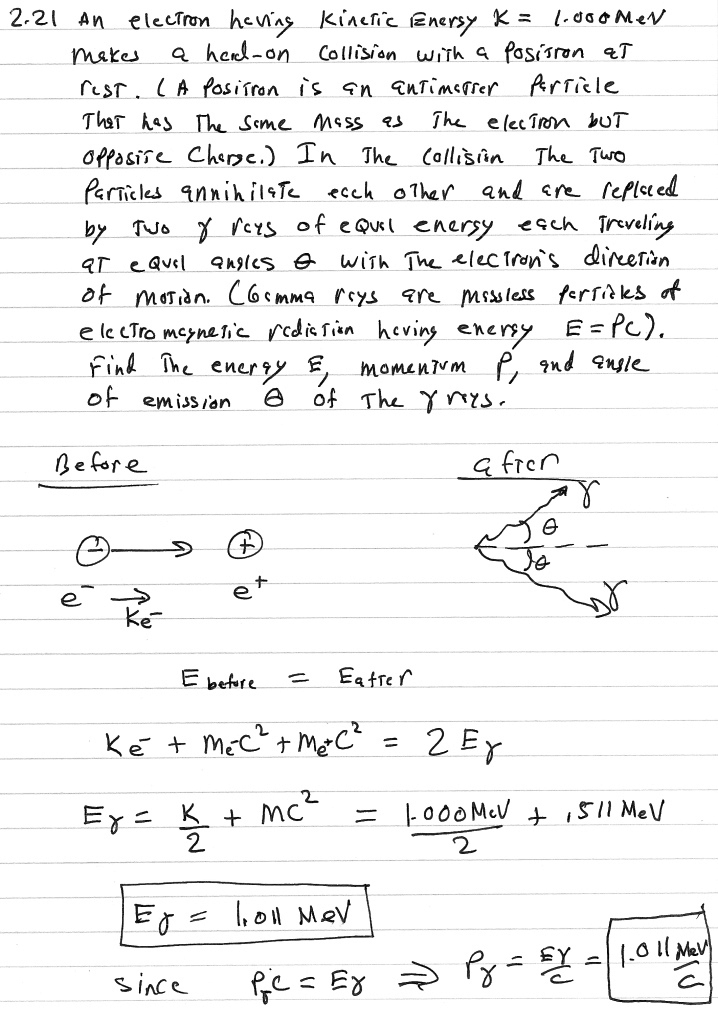 2.21 An electron having Kinetic Energy K = 1.000 MeV
makes a head-on collision with a Positron at
rest. (A Positron is an antimatter Particle
That has The same Mass as The electron but
opposite Charge.) In The Collision The Two
Particles annihilate each other and are replaced
by Two γ rays of equal energy each Traveling
at equal angles θ with The electron's direction
of Motion. (Gamma rays are massless particles of
electromagnetic radiation having energy E = PC).
Find The energy E, momentum P, and angle
of emission θ of The γ rays.
Before after
γ
θ
- +
θ
e⁻ → e⁺ γ
Ke⁻
E before = E after
Ke⁻ + Me⁻C² + Me⁺C² = 2 Eγ
Eγ = K/2 + MC² = 1.000 MeV/2 + .511 MeV
Eγ = 1.011 MeV
since PγC = Eγ ⇒ Pγ = Eγ/C = 1.011 MeV/C